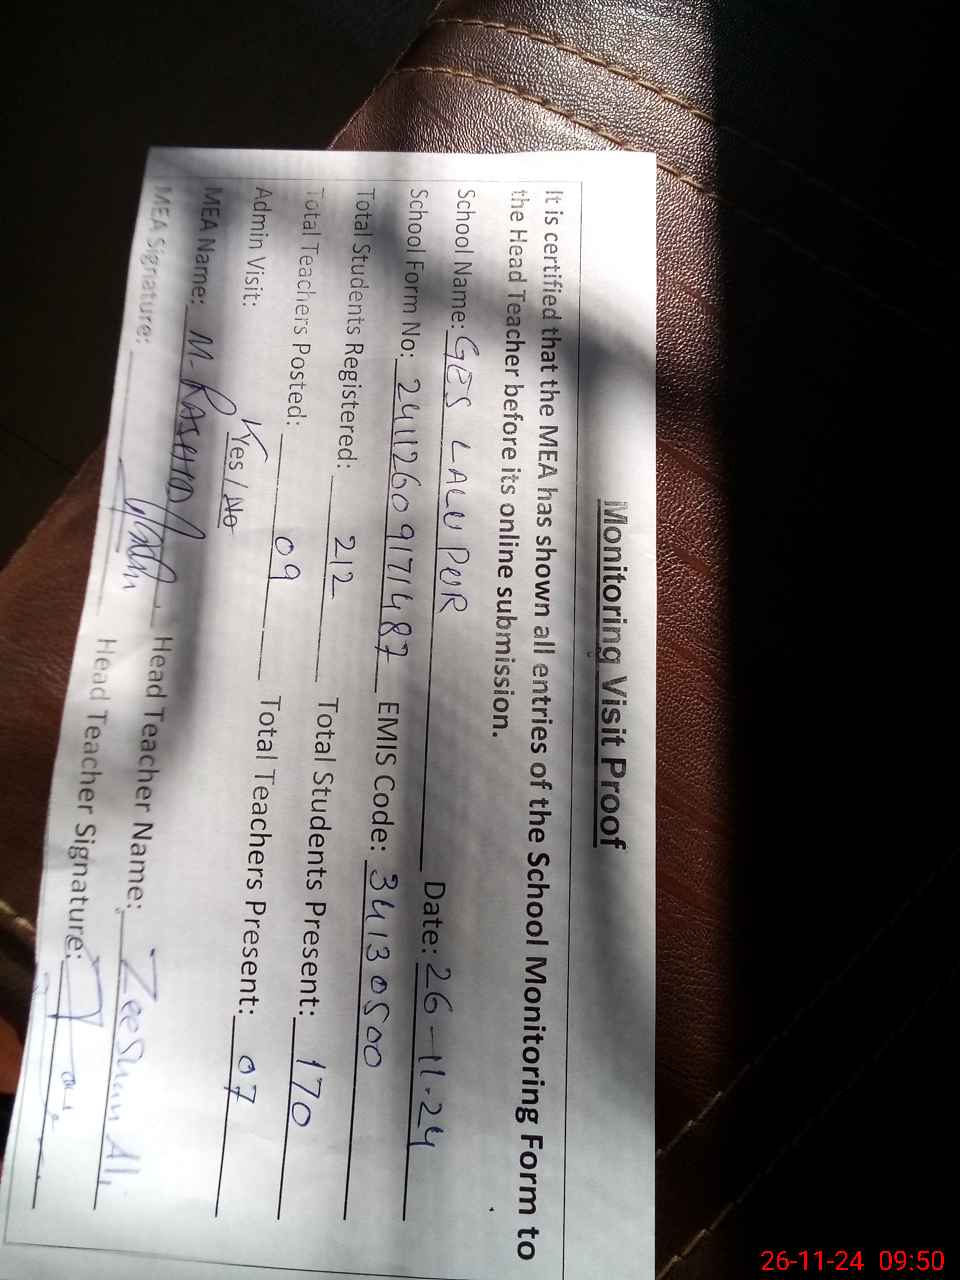 Monitoring Visit Proof
It is certified that the MEA has shown all entries of the School Monitoring Form to
the Head Teacher before its online submission.
School Name: GES LALU PUR Date: 26-11-24
School Form No: 24112609171487 EMIS Code: 34130500
Total Students Registered: 212 Total Students Present: 170
Total Teachers Posted: 09 Total Teachers Present: 07
Admin Visit: Yes / No
MEA Name: M. RASHID Head Teacher Name: Zeeshan Ali
MEA Signature: Head Teacher Signature:
26-11-24 09:50